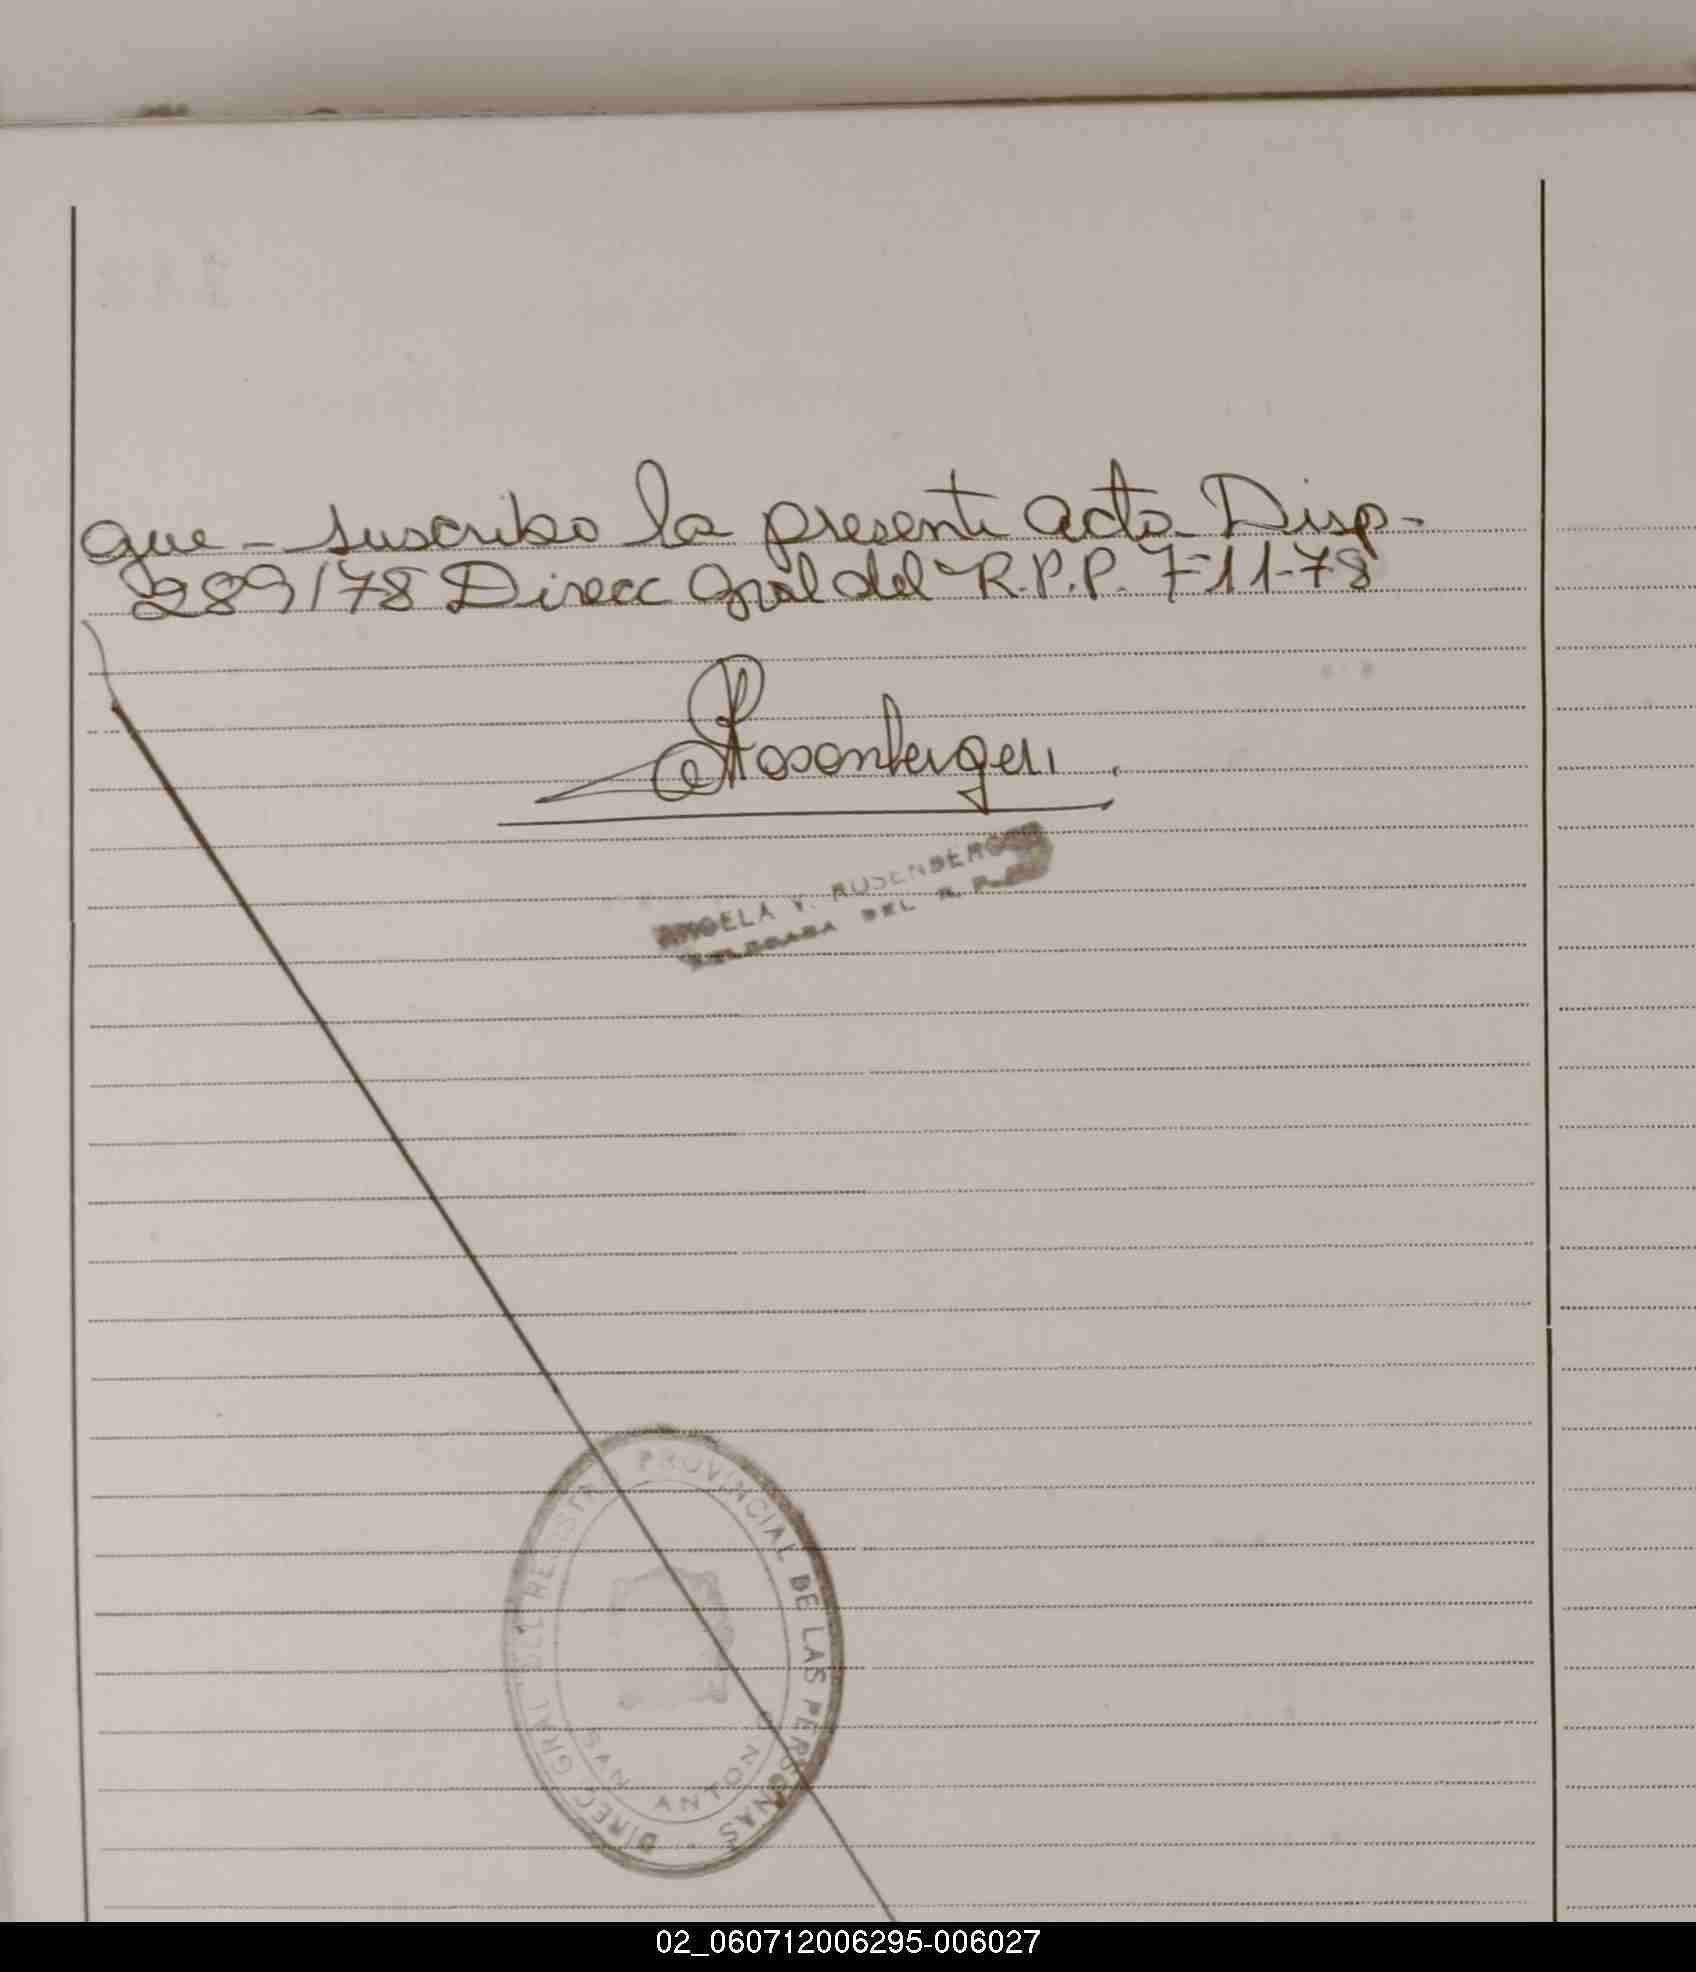 que - suscribo la presente acta - Disp -
289/78 Direcc Gral del R.P.P. 7-11-78
Rosenberger
ANGELA V. ROSENBERGER
DELEGADA DEL R. P.
DIRECC GRAL DEL REGISTRO PROVINCIAL DE LAS PERSONAS
SAN ANTONIO
02_060712006295-006027